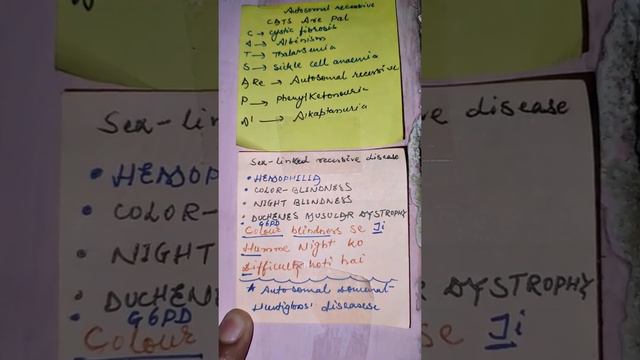 Autosomal recessive
CATS Are Pal
C → cystic fibrosis
A → Albinism
T → Thalassemia
S → Sickle cell anaemia
A Re → Autosomal recessive
P → Phenylketonuria
Al → Alkaptanuria
Sex-linked recessive disease
• HEMOPHILIA
• COLOR-BLINDNESS
• NIGHT BLINDNESS
• DUCHENES MUSULAR DYSTROPHY
• G6PD
Colour blindness se Ji
Humme Night ko
Difficulty hoti hai
* Autosomal
Sex-linked
ve disease
• HEMOP
• COLOR-
• NIGHT
• DUCHENE
G6PD
Colour
DYSTROPHY
se Ji